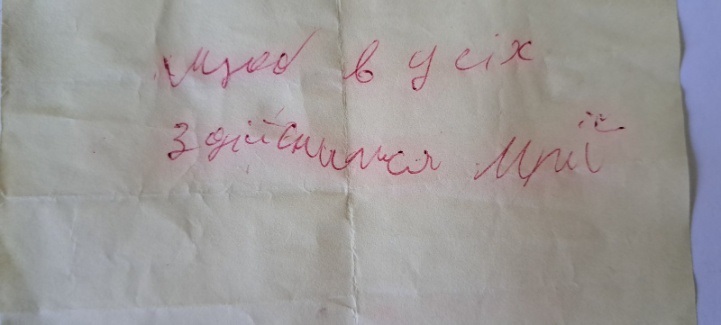 щоб в усіх
здійснилися мрії